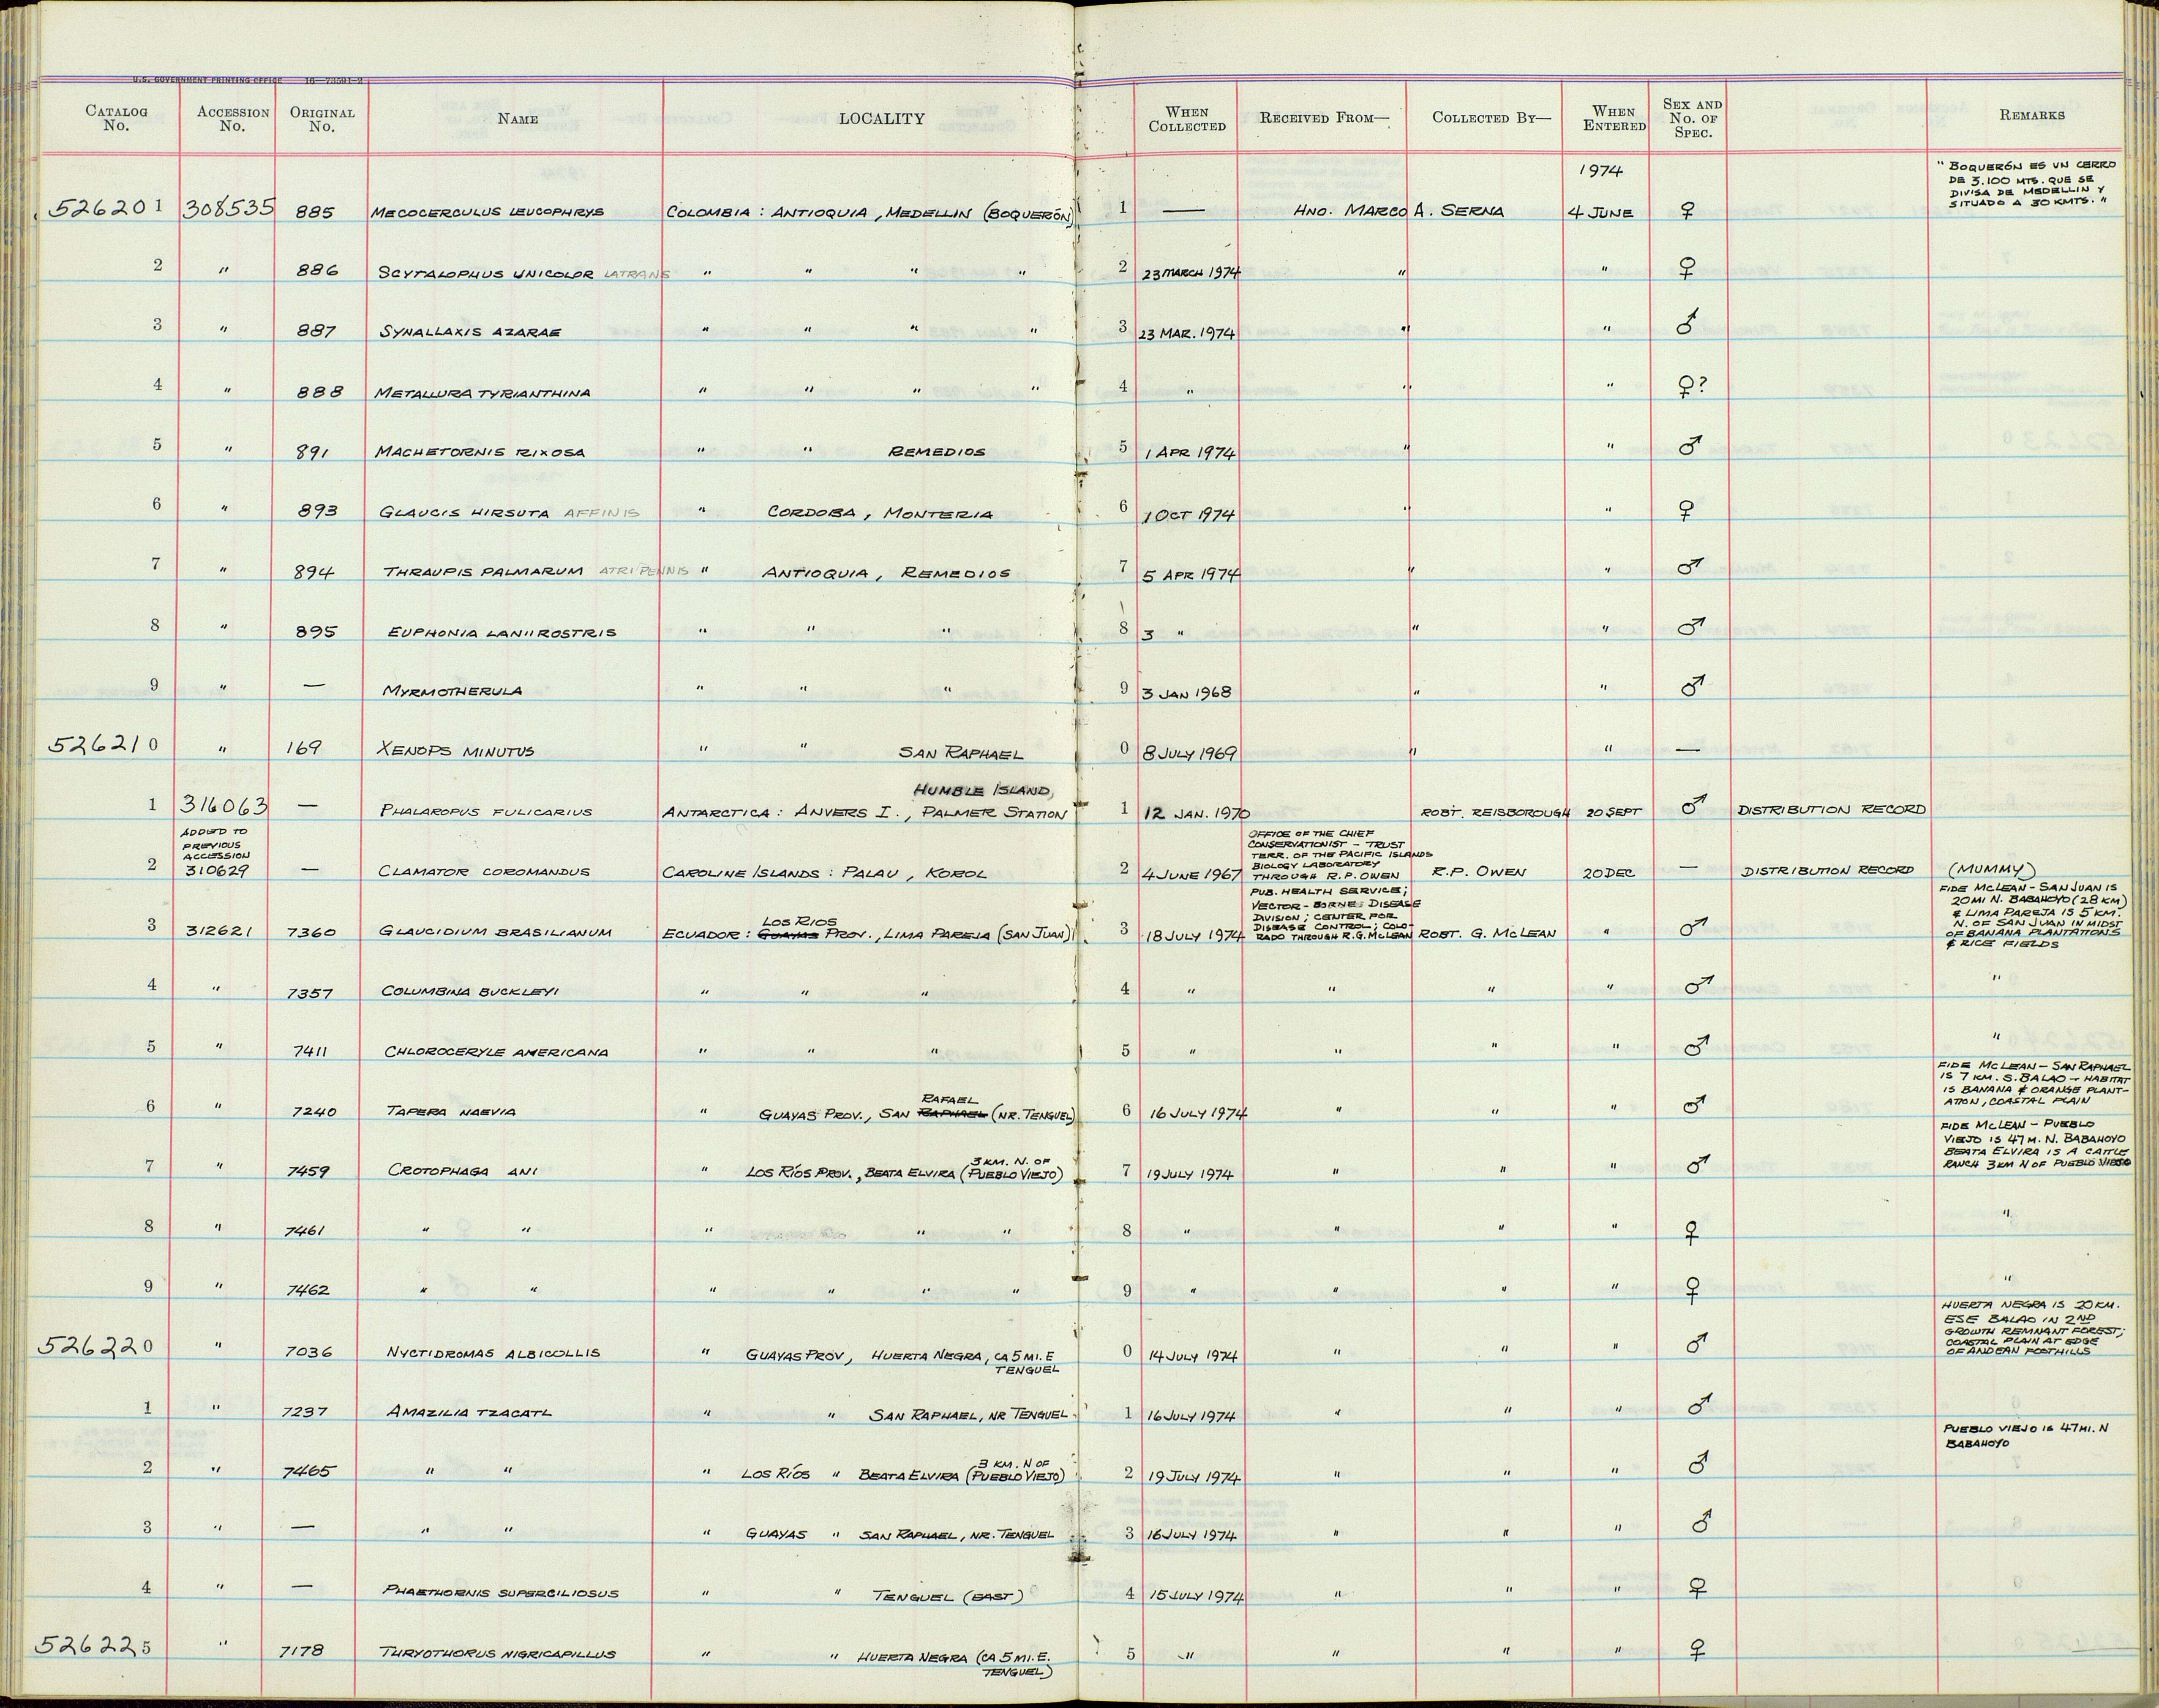 U.S. GOVERNMENT PRINTING OFFICE 16—73591-2
CATALOG No. ACCESSION No. ORIGINAL No. NAME LOCALITY WHEN COLLECTED RECEIVED FROM— COLLECTED BY— WHEN ENTERED SEX AND No. OF SPEC. REMARKS
1974
526201 308535 885 MECOCERCULUS LEUCOPHRYS COLOMBIA : ANTIOQUIA, MEDELLIN (BOQUERÓN) 1 — HNO. MARCO A. SERNA 4 JUNE ♀ "BOQUERÓN ES UN CERRO
DE 3.100 MTS. QUE SE
DIVISA DE MEDELLIN Y
SITUADO A 30 KMTS."
2 " 886 SCYTALOPHUS UNICOLOR LATRANS " " " " 2 23 MARCH 1974 " " ♀
3 " 887 SYNALLAXIS AZARAE " " " " 3 23 MAR. 1974 " " ♂
4 " 888 METALLURA TYRIANTHINA " " " " 4 " " " ♀?
5 " 891 MACHETORNIS RIXOSA " " REMEDIOS 5 1 APR 1974 " " ♂
6 " 893 GLAUCIS HIRSUTA AFFINIS " CORDOBA, MONTERIA 6 1 OCT 1974 " " ♀
7 " 894 THRAUPIS PALMARUM ATRIPENNIS " ANTIOQUIA, REMEDIOS 7 5 APR 1974 " " ♂
8 " 895 EUPHONIA LANIIROSTRIS " " " 8 3 " " " ♂
9 " — MYRMOTHERULA " " " 9 3 JAN 1968 " " ♂
526210 " 169 XENOPS MINUTUS " " SAN RAPHAEL 0 8 JULY 1969 " " —
HUMBLE ISLAND,
1 316063 — PHALAROPUS FULICARIUS ANTARCTICA : ANVERS I., PALMER STATION 1 12 JAN. 1970 ROBT. REISBOROUGH 20 SEPT ♂ DISTRIBUTION RECORD
ADDED TO
PREVIOUS
ACCESSION
2 310629 — CLAMATOR COROMANDUS CAROLINE ISLANDS : PALAU, KOROL 2 4 JUNE 1967 OFFICE OF THE CHIEF
CONSERVATIONIST – TRUST
TERR. OF THE PACIFIC ISLANDS
BIOLOGY LABORATORY
THROUGH R.P. OWEN R.P. OWEN 20 DEC — DISTRIBUTION RECORD (MUMMY)
LOS RIOS
3 312621 7360 GLAUCIDIUM BRASILIANUM ECUADOR : GUAYAS PROV., LIMA PAREJA (SAN JUAN) 3 18 JULY 1974 PUB. HEALTH SERVICE;
VECTOR-BORNE DISEASE
DIVISION; CENTER FOR
DISEASE CONTROL; COLO-
RADO THROUGH R.G. McLEAN ROBT. G. McLEAN " ♂ FIDE McLEAN – SAN JUAN IS
20 MI N. BABAHOYO (28 KM)
& LIMA PAREJA IS 5 KM.
N. OF SAN JUAN IN MIDST
OF BANANA PLANTATIONS
& RICE FIELDS
4 " 7357 COLUMBINA BUCKLEYI " " " 4 " " " " ♂ "
5 " 7411 CHLOROCERYLE AMERICANA " " " 5 " " " " ♂ "
RAFAEL
6 " 7240 TAPERA NAEVIA " GUAYAS PROV., SAN RAPHAEL (NR. TENGUEL) 6 16 JULY 1974 " " " ♂ FIDE McLEAN – SAN RAPHAEL
IS 7 KM. S. BALAO – HABITAT
IS BANANA & ORANGE PLANT-
ATION, COASTAL PLAIN
3 KM. N. OF
7 " 7459 CROTOPHAGA ANI " LOS RÍOS PROV., BEATA ELVIRA (PUEBLO VIEJO) 7 19 JULY 1974 " " " ♂ FIDE McLEAN – PUEBLO
VIEJO IS 47 M. N. BABAHOYO
BEATA ELVIRA IS A CATTLE
RANCH 3 KM N OF PUEBLO VIEJO
8 " 7461 " " " " " 8 " " " " ♀ "
9 " 7462 " " " " " " 9 " " " " ♀ "
526220 " 7036 NYCTIDROMAS ALBICOLLIS " GUAYAS PROV, HUERTA NEGRA, CA 5 MI. E
TENGUEL 0 14 JULY 1974 " " " ♂ HUERTA NEGRA IS 20 KM.
ESE BALAO IN 2ND
GROWTH REMNANT FOREST;
COASTAL PLAIN AT EDGE
OF ANDEAN FOOTHILLS
1 " 7237 AMAZILIA TZACATL " " SAN RAPHAEL, NR TENGUEL 1 16 JULY 1974 " " " ♂
3 KM. N OF
2 " 7465 " " " LOS RÍOS " BEATA ELVIRA (PUEBLO VIEJO) 2 19 JULY 1974 " " " ♂ PUEBLO VIEJO IS 47 MI. N
BABAHOYO
3 " — " " " GUAYAS " SAN RAPHAEL, NR. TENGUEL 3 16 JULY 1974 " " " ♂
4 " — PHAETHORNIS SUPERCILIOSUS " " TENGUEL (EAST) 4 15 JULY 1974 " " " ♀
526225 " 7178 THRYOTHORUS NIGRICAPILLUS " " HUERTA NEGRA (CA 5 MI. E.
TENGUEL) 5 " " " " ♀